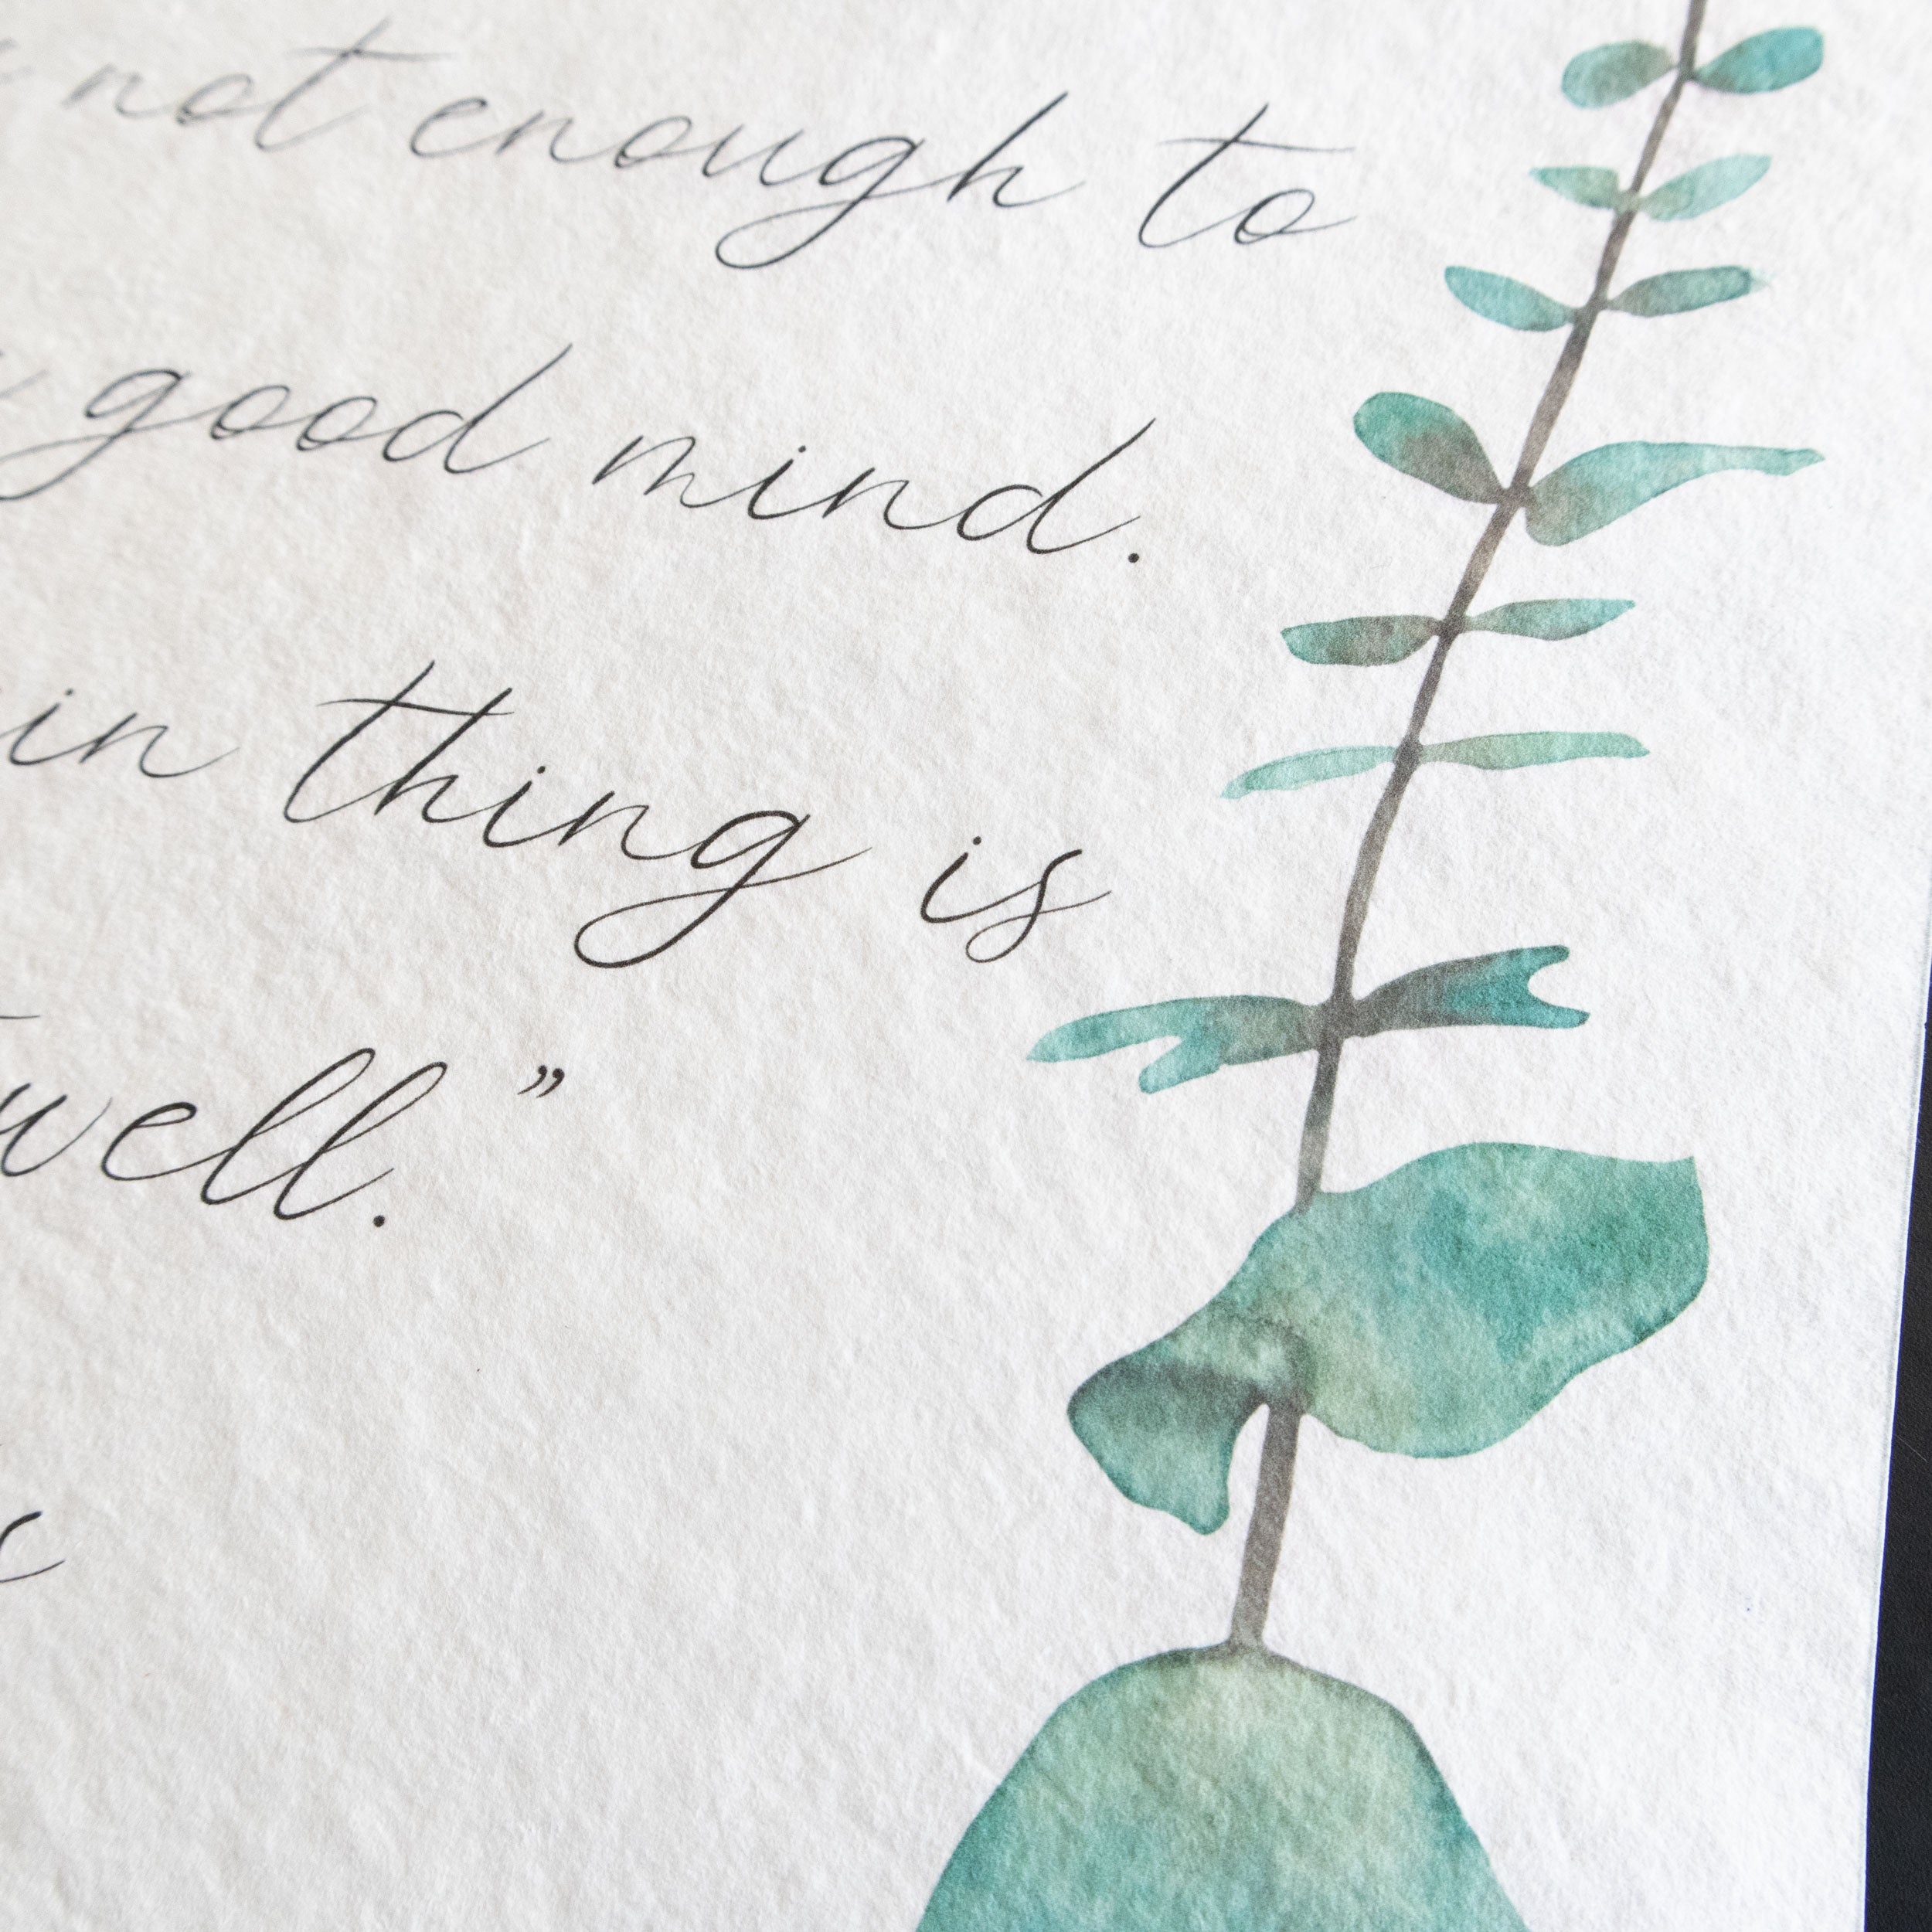 not enough to
good mind.
in thing is
well.”